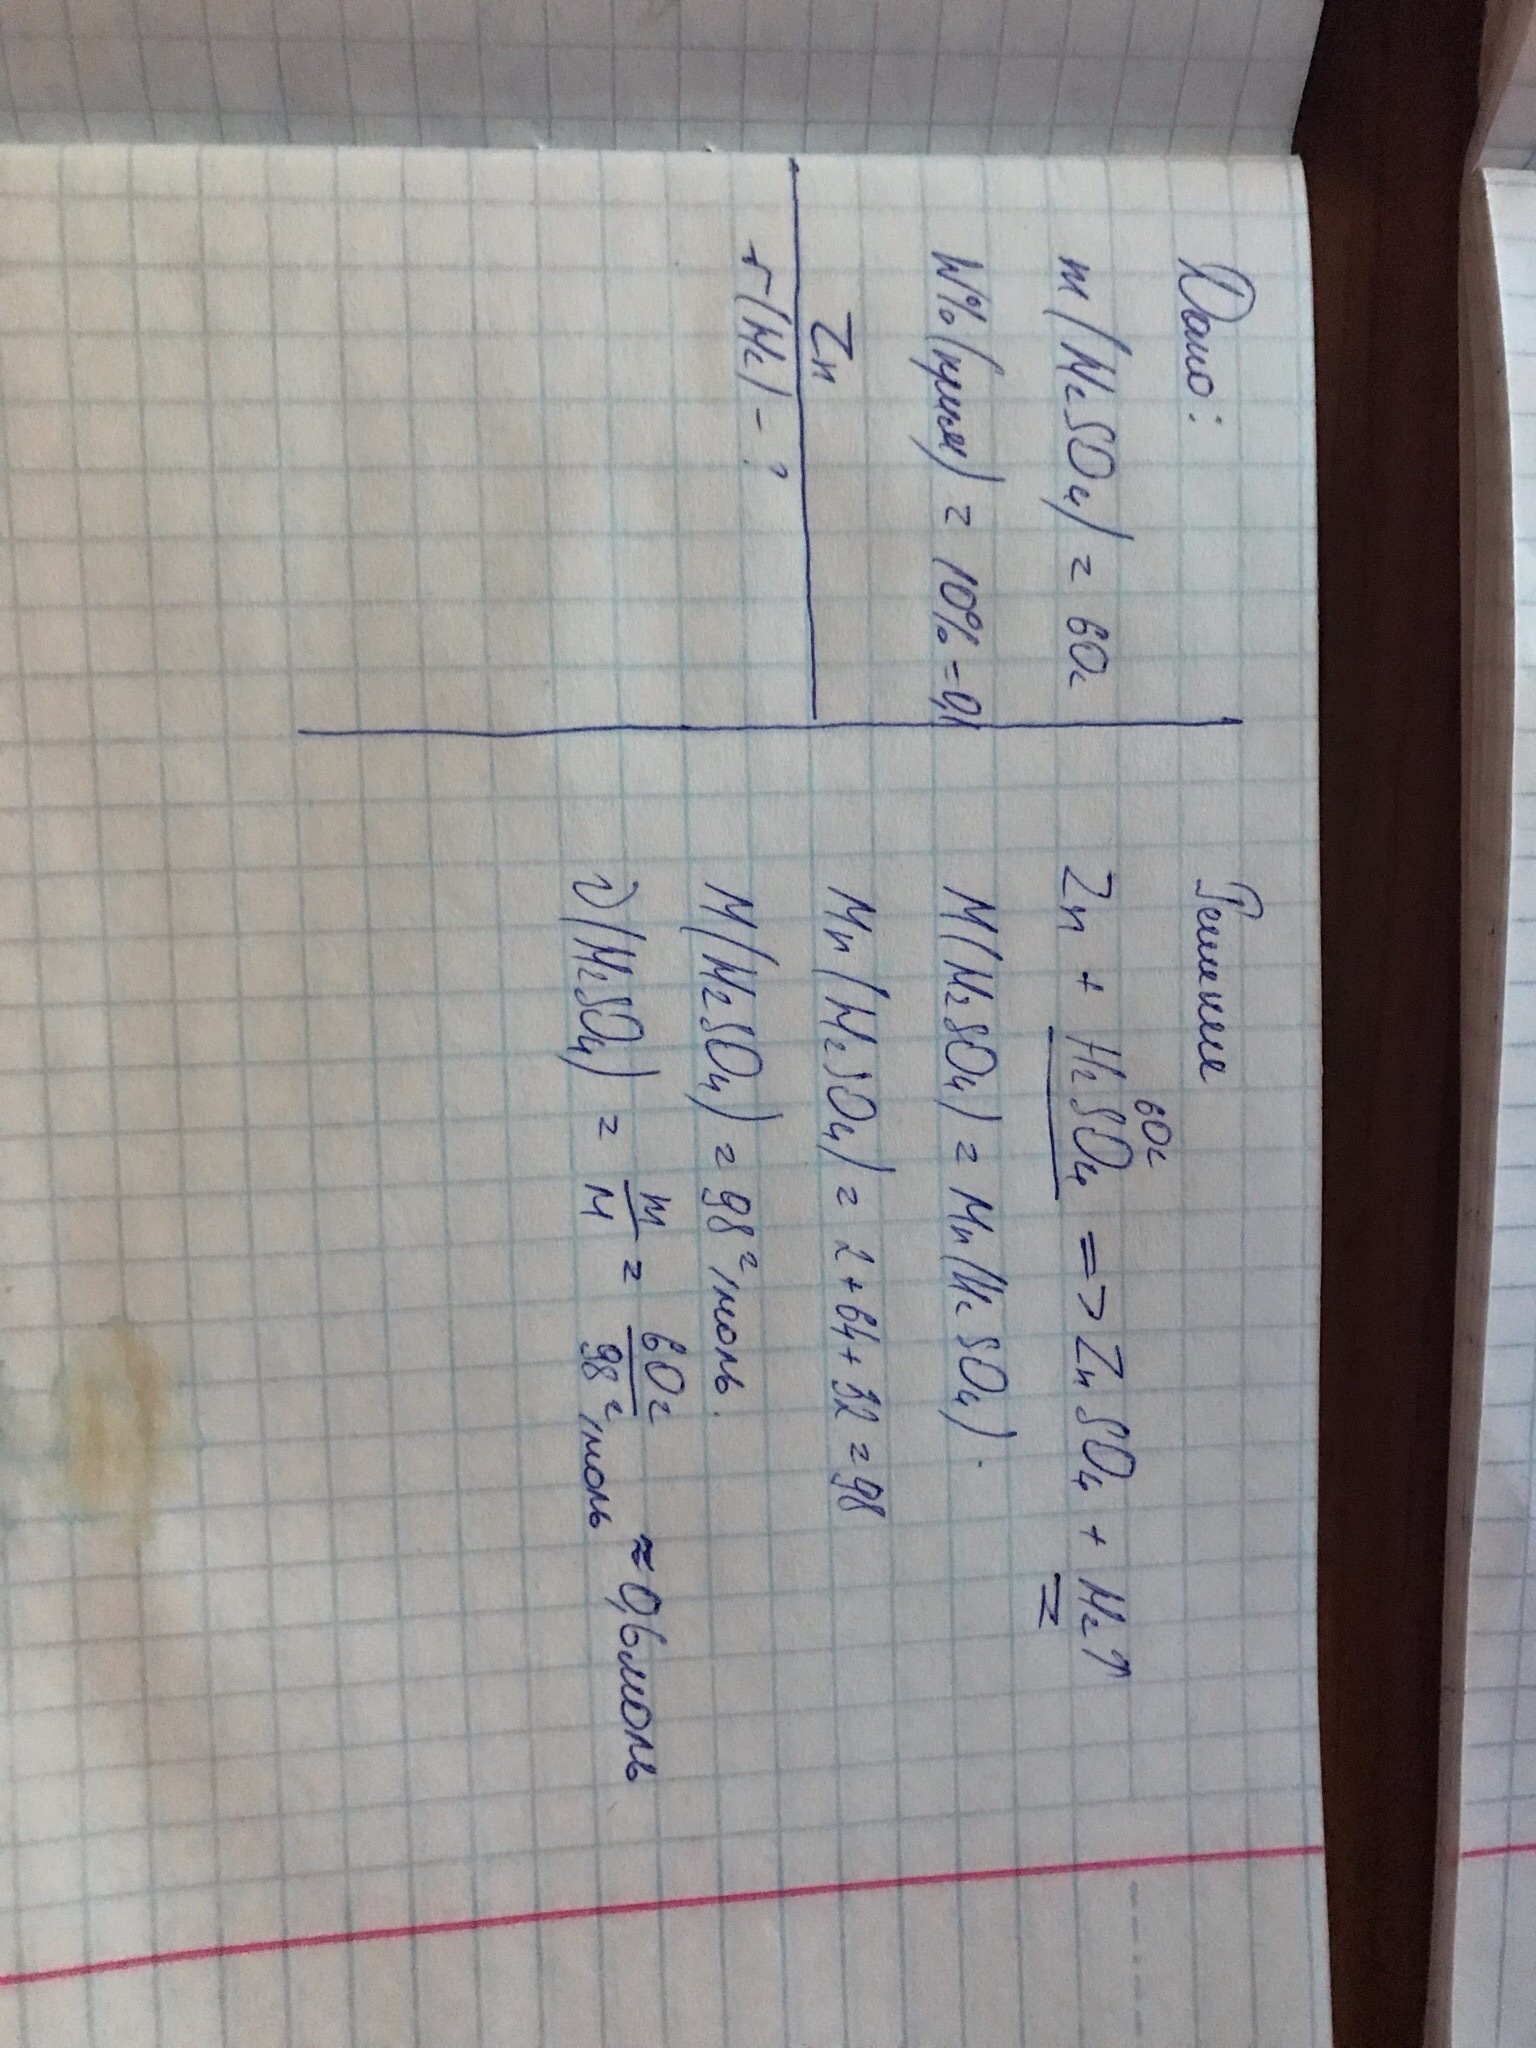 Дано:
m(H₂SO₄) = 60г
W%(прим) = 10% = 0,1
Zn
(H₂) - ?
Решение
60г
Zn + H₂SO₄ => ZnSO₄ + H₂↑
M(H₂SO₄) = Mr(H₂SO₄).
Mr(H₂SO₄) = 2+64+32 = 98
M(H₂SO₄) = 98 г/моль.
ν(H₂SO₄) = m/M = 60г/98 г/моль ≈ 0,6моль